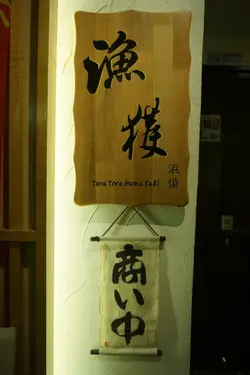 漁獲
Tore Tore Hama Yaki
浜焼
商い中